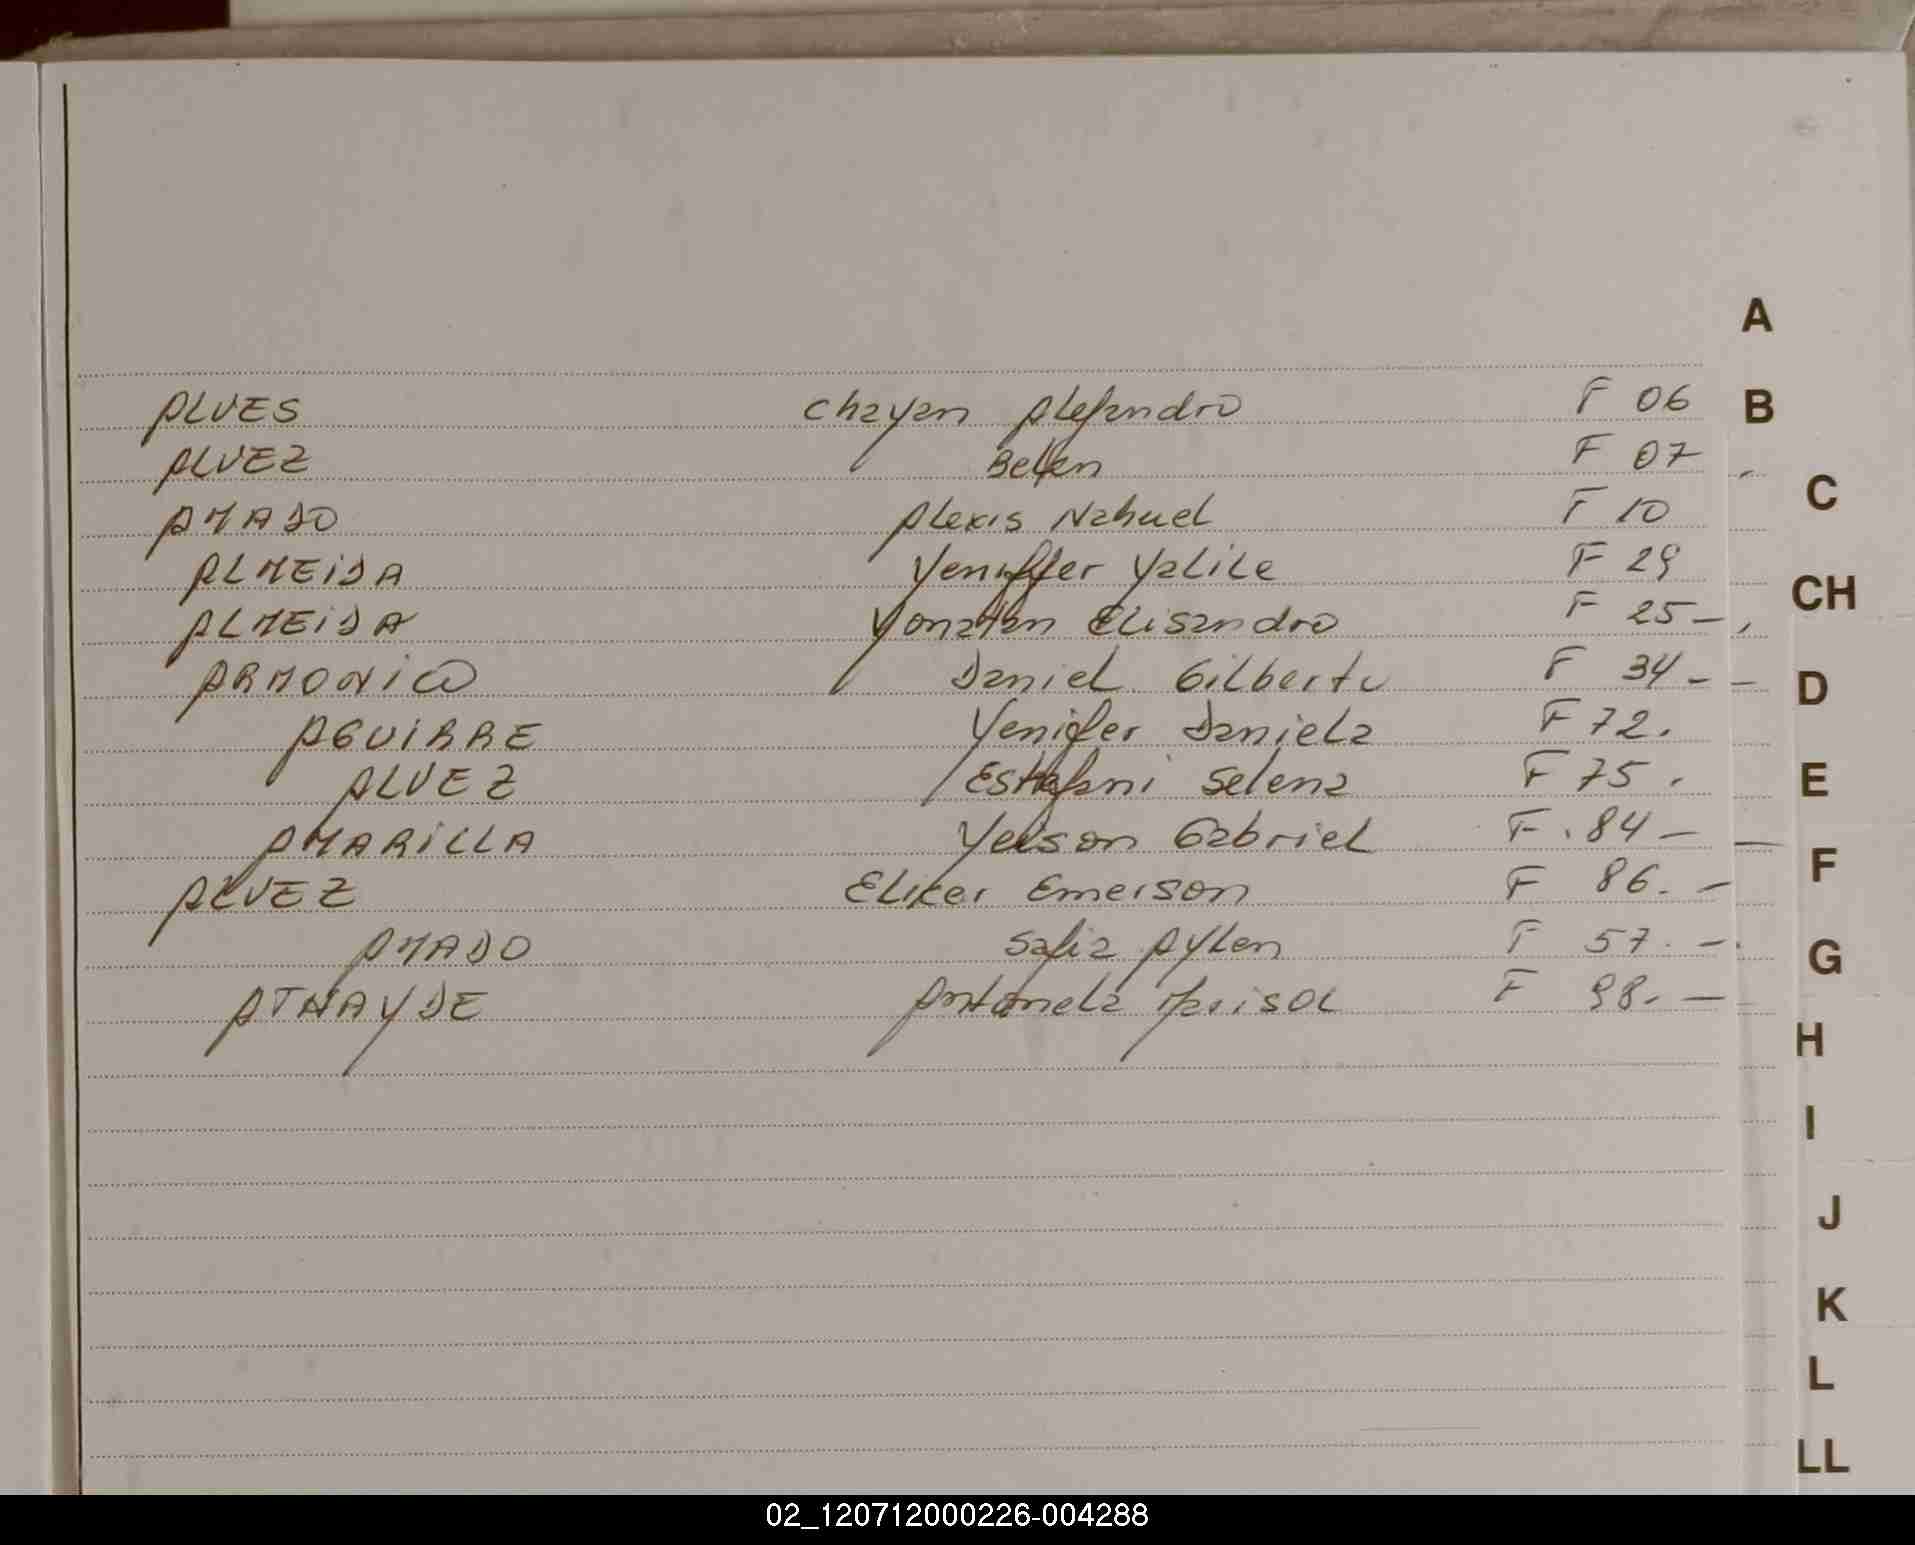 A
ALVES Chayan Alejandro F 06
B
ALVEZ Belen F 07
C
AMADO Alexis Nahuel F 10
ALMEiDA Yeniffer Yalile F 29
CH
ALMEiDA Yonatan Elisandro F 25 –
ARMONiCO Daniel Gilberto F 34 – –
D
AGUiRRE Yenifer Daniela F 72.
ALVEZ Estefani Selena F 75.
E
AMARiLLA Yeison Gabriel F. 84 –
F
ALVEZ Elicer Emerson F 86. –
AMADO Safia Aylen F 57. –
G
ATHAYDE Antonela Marisol F 98. –
H
I
J
K
L
LL
02_120712000226-004288